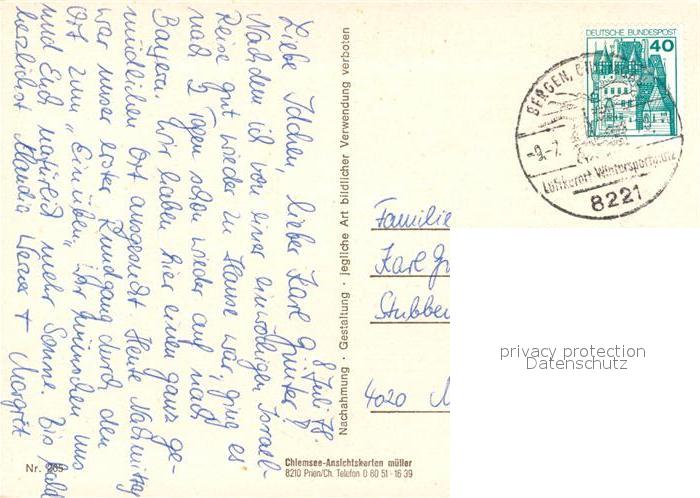 8. Juli 78.
Liebe Jochen, lieber Karl Günter!
Nachdem ich von einer einwöchigen Israel-
Reise gut wieder zu Hause war, ging es
nach 2 Tagen schon wieder auf nach
Bayern. Wir haben hier einen ganz ge-
mütlichen Ort ausgesucht. Heute Nachmittag
war unser erster Rundgang durch den
Ort zum "Einüben". Wir wünschen uns
und Euch natürlich mehr Sonne. Bis bald
herzlichst Klaudia Werner + Margret
Nachahmung · Gestaltung · jegliche Art bildlicher Verwendung verboten
DEUTSCHE BUNDESPOST
40
BERGEN,
-9.-7.
Luftkurort Wintersportplatz
8221
Familie
Karl
4020
privacy protection
Datenschutz
Nr. 265
Chiemsee-Ansichtskarten müller
8210 Prien/Ch. Telefon 0 80 51 · 16 39